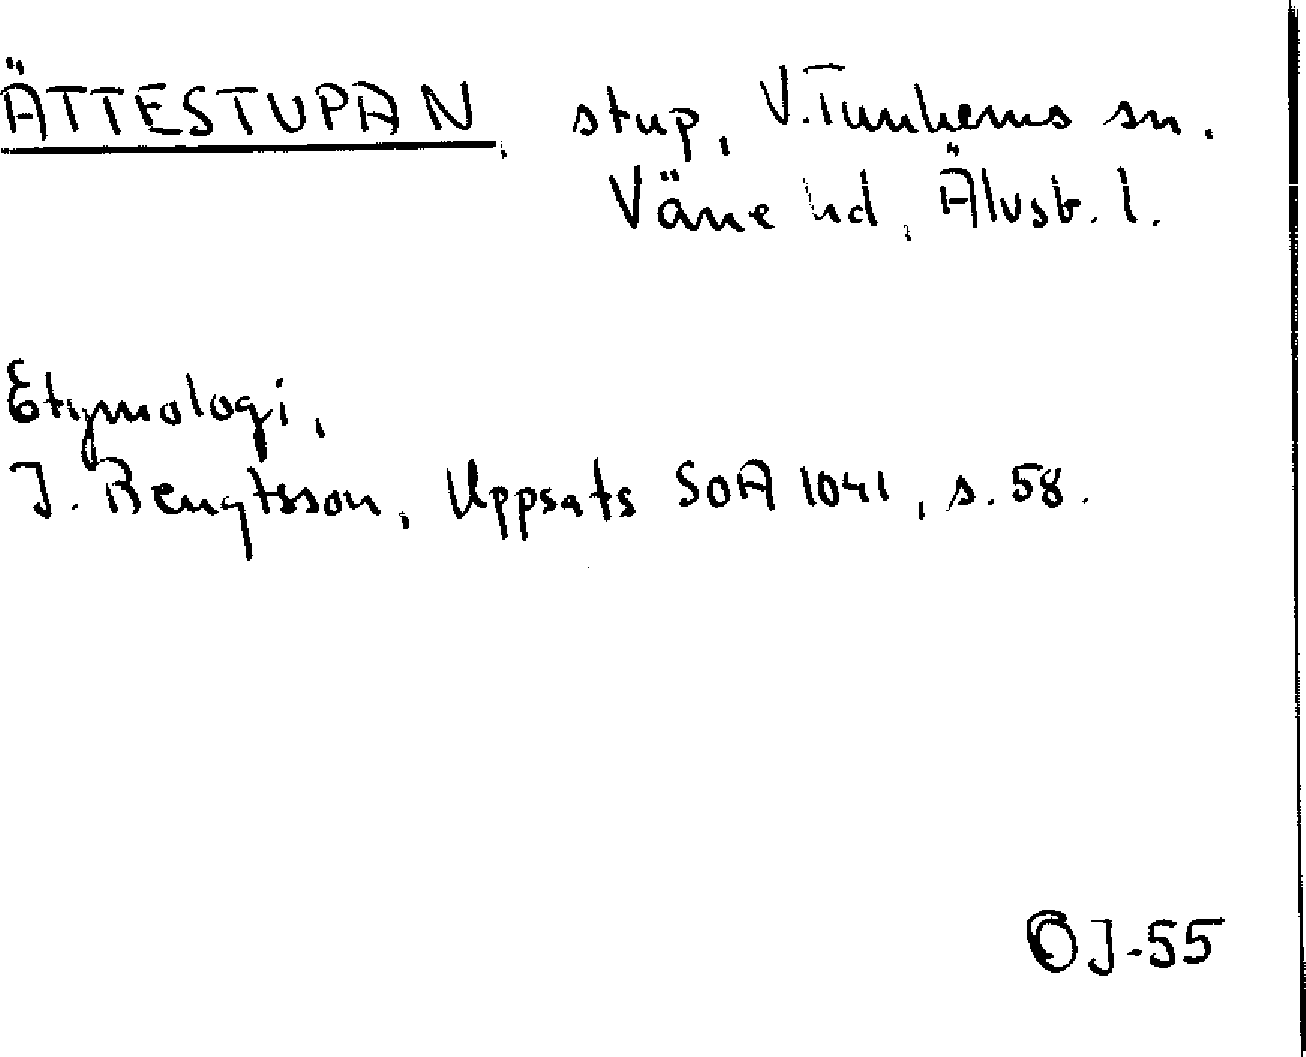 ÄTTESTUPAN, stup, V. Tunhems sn.
Väne hd, Älvsb. l.
Etymologi,
J. Bengtsson, Uppsats SOA 1041, s. 58.
OJ-55